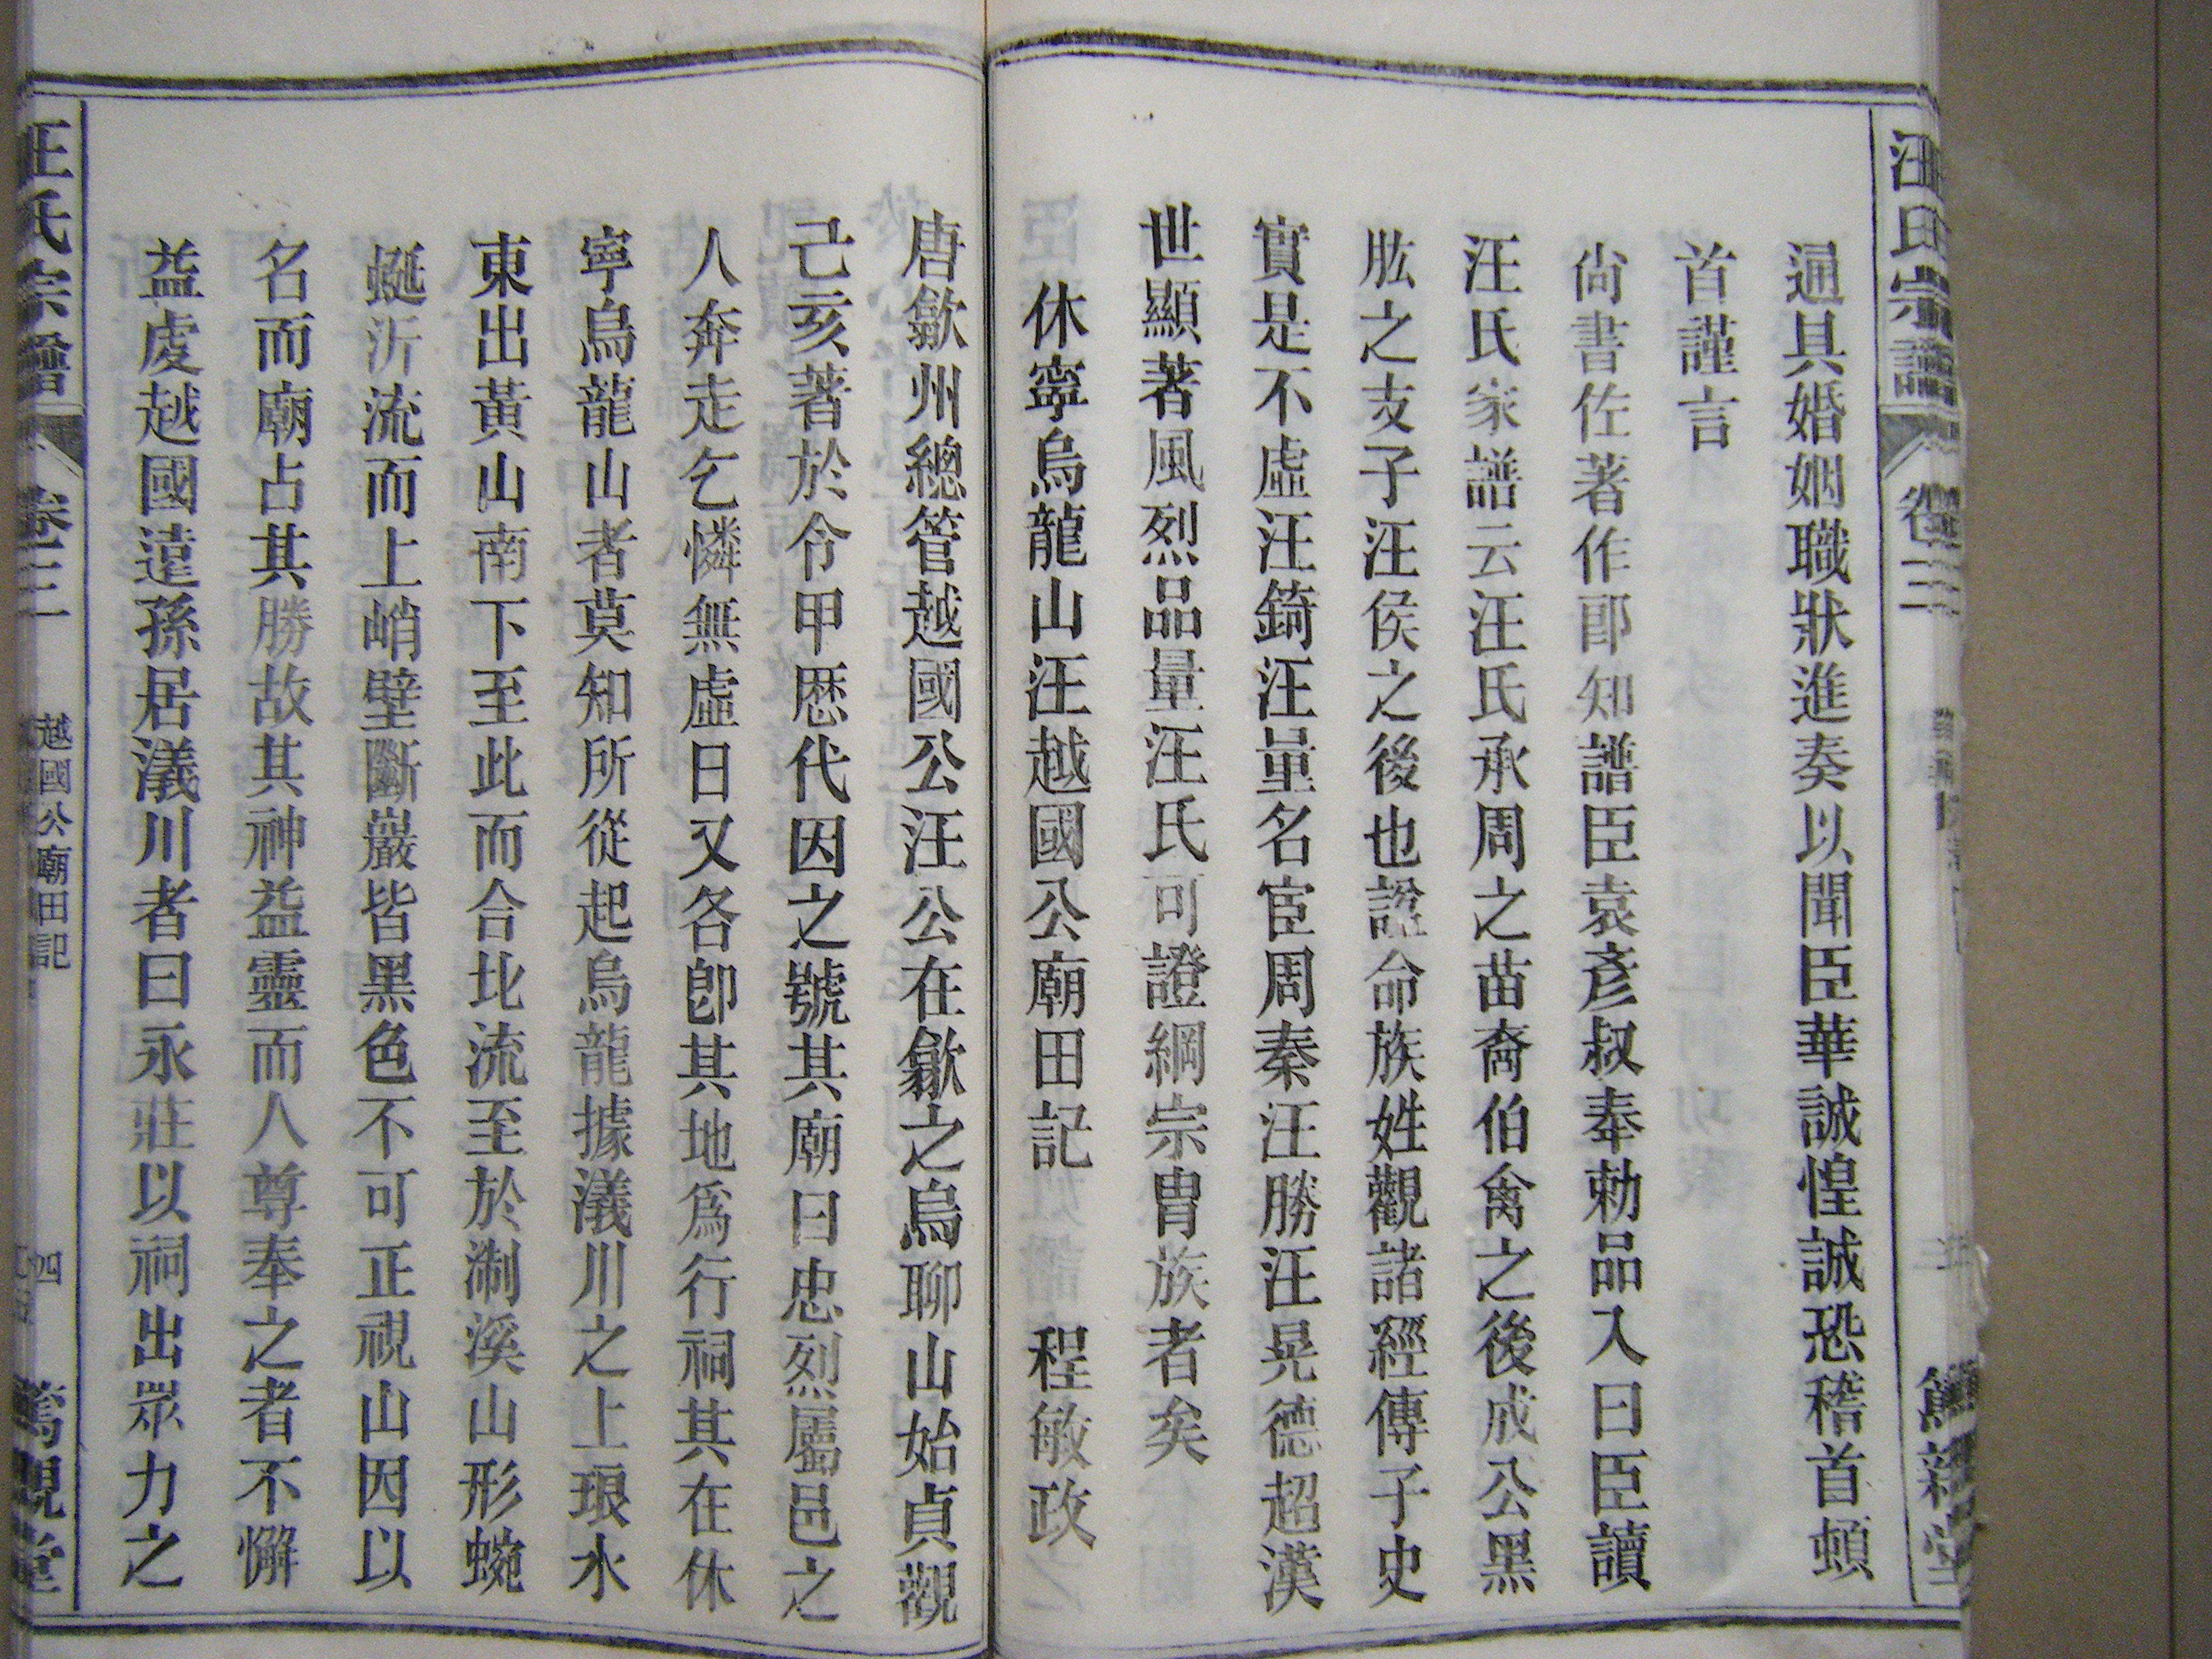 汪氏宗譜
卷三
通具婚姻職狀進奏以聞臣華誠惶誠恐稽首頓
首謹言
尙書佐著作郎知譜臣袁彥叔奉勅品入曰臣讀
汪氏家譜云汪氏承周之苗裔伯禽之後成公黑
肱之支子汪侯之後也諡命族姓觀諸經傳子史
實是不虛汪錡汪量名宦周秦汪勝汪晃德超漢
世顯著風烈品量汪氏可證綱宗胄族者矣
休寧烏龍山汪越國公廟田記 程敏政
唐歙州總管越國公汪公在歙之烏聊山始貞觀
己亥著於令甲歷代因之號其廟曰忠烈屬邑之
人奔走乞憐無虛日又各卽其地爲行祠其在休
寧烏龍山者莫知所從起烏龍據瀁川之上琅水
東出黃山南下至此而合北流至於淛溪山形蜿
蜒沂流而上峭壁斷巖皆黑色不可正視山因以
名而廟占其勝故其神益靈而人尊奉之者不懈
益虔越國遠孫居瀁川者曰永莊以祠出眾力之
汪氏宗譜
卷三
越國公廟田記
四